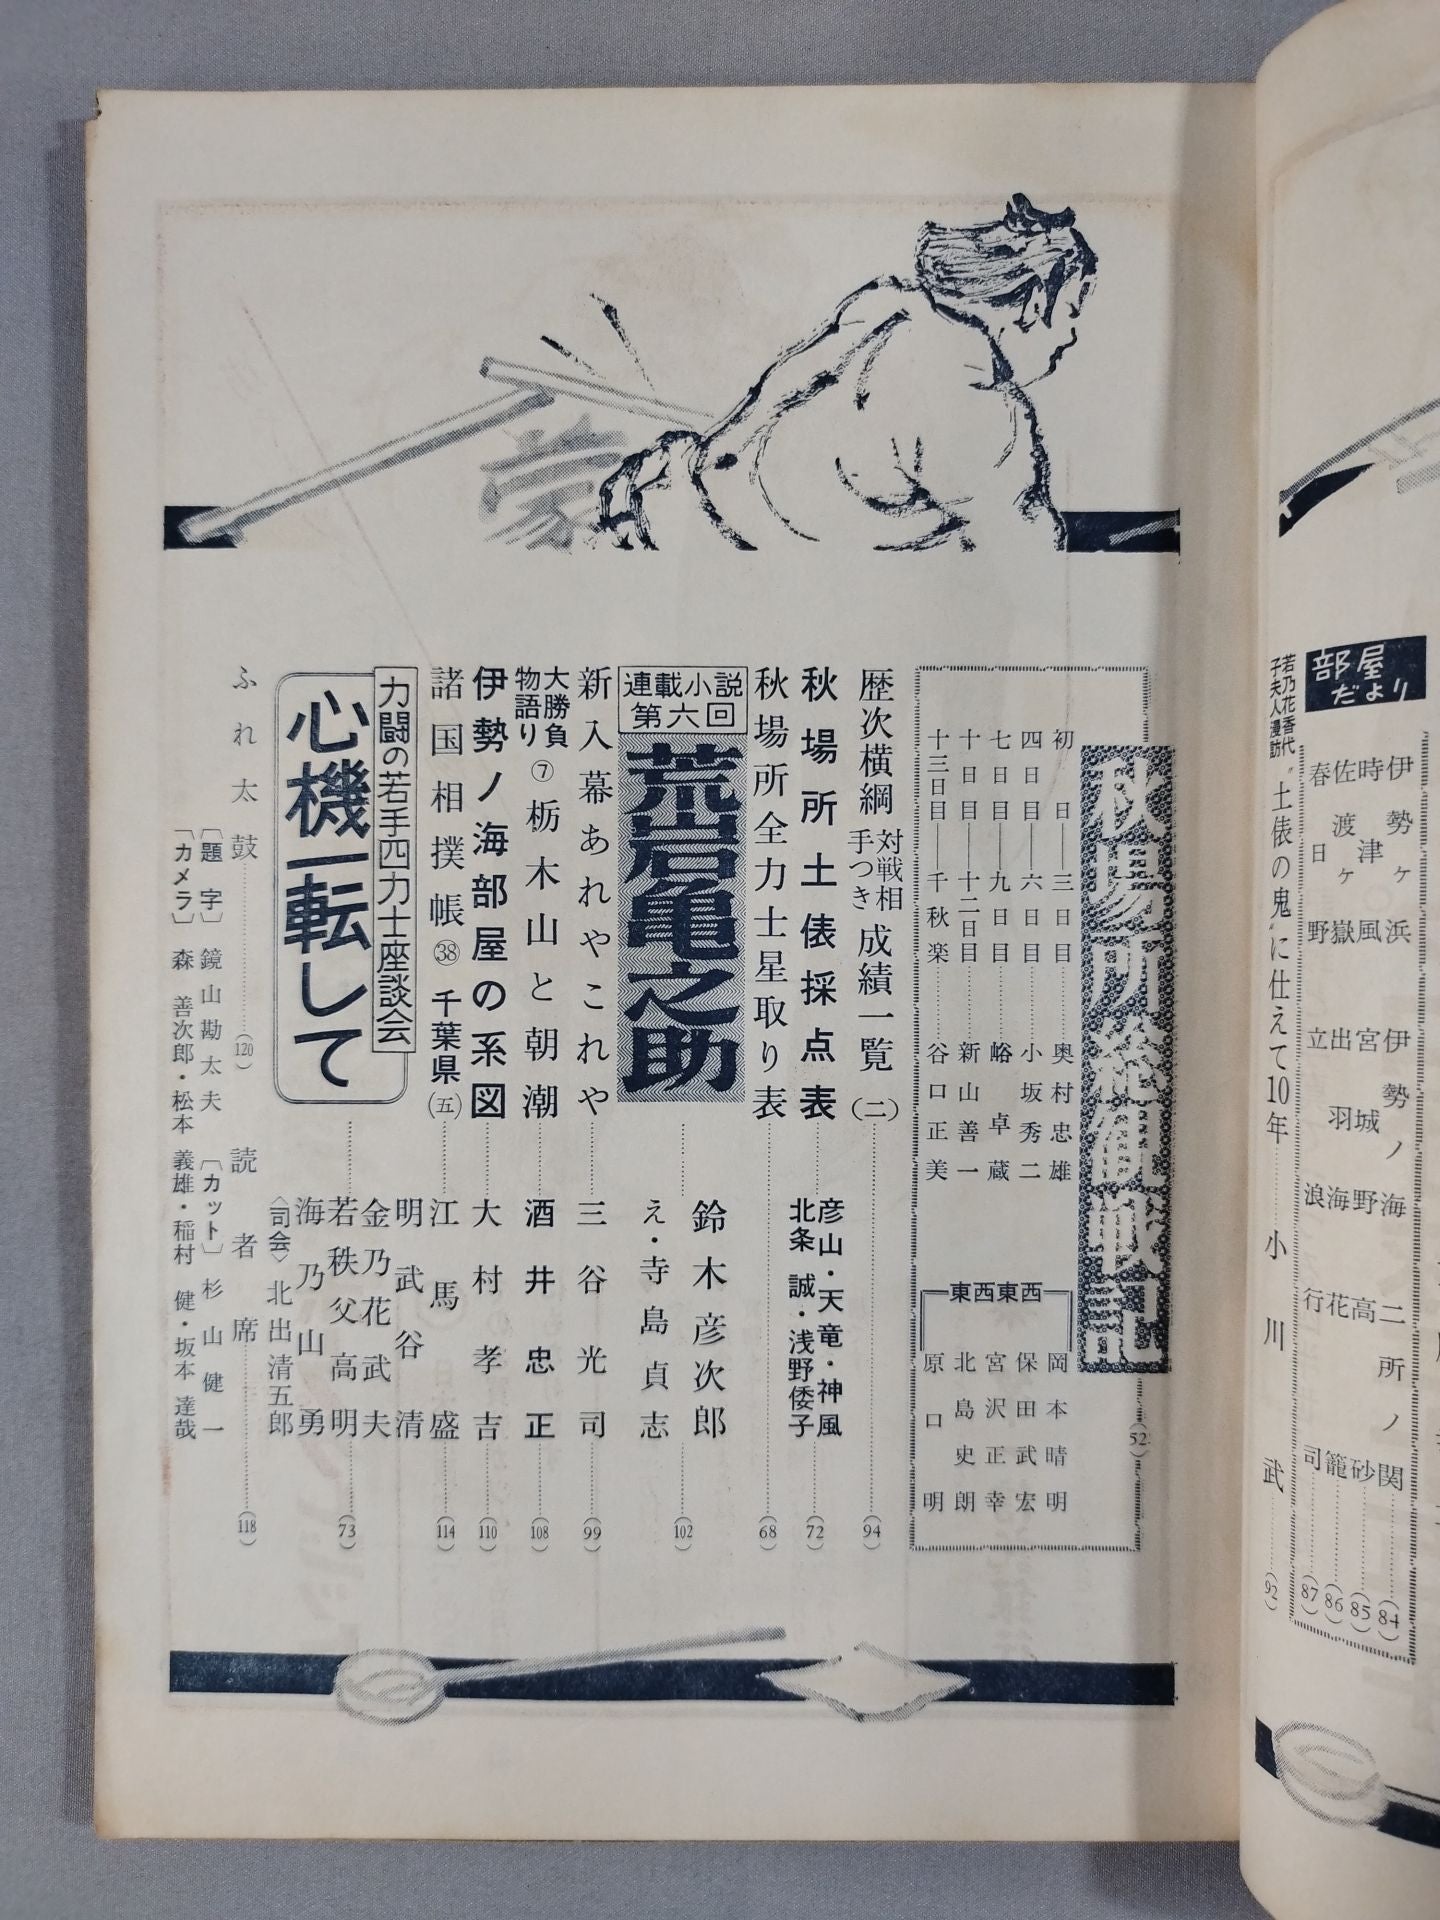 部屋だより
伊勢ヶ浜
時津風
佐渡ヶ嶽
春日野
伊勢ノ海
宮城野
出羽海
立浪
二所ノ関
高砂
花籠
行司
(84)
(85)
(86)
(87)
若乃花香代子夫人漫訪
〝土俵の鬼〟に仕えて10年
小川武
(92)
秋場所総観戦記
(52)
初日――三日目………奥村忠雄
四日目――六日目………小坂秀二
七日目――九日目………峪卓蔵
十日目――十二日目………新山善一
十三日目――千秋楽………谷口正美
東西東西
岡本晴明
保田武宏
宮沢正幸
北島史朗
原口明
歴次横綱対戦相手つき成績一覧(二)………(94)
秋場所土俵採点表………彦山・天竜・神風
北条誠・浅野倭子………(72)
秋場所全力士星取り表………(68)
連載小説
第六回
荒岩亀之助………鈴木彦次郎
え・寺島貞志………(102)
新入幕あれやこれや………三谷光司………(99)
大勝負物語り⑦栃木山と朝潮………酒井忠正………(108)
伊勢ノ海部屋の系図………大村孝吉………(110)
諸国相撲帳㊳千葉県(五)………江馬盛………(114)
力闘の若手四力士座談会
心機一転して
明武谷清
金乃花武夫
若秩父高明
海乃山勇
〈司会〉北出清五郎
(73)
ふれ太鼓………(120)
読者席………(118)
〔題字〕鏡山勘太夫
〔カット〕杉山健一
〔カメラ〕森善次郎・松本義雄・稲村健・坂本達哉